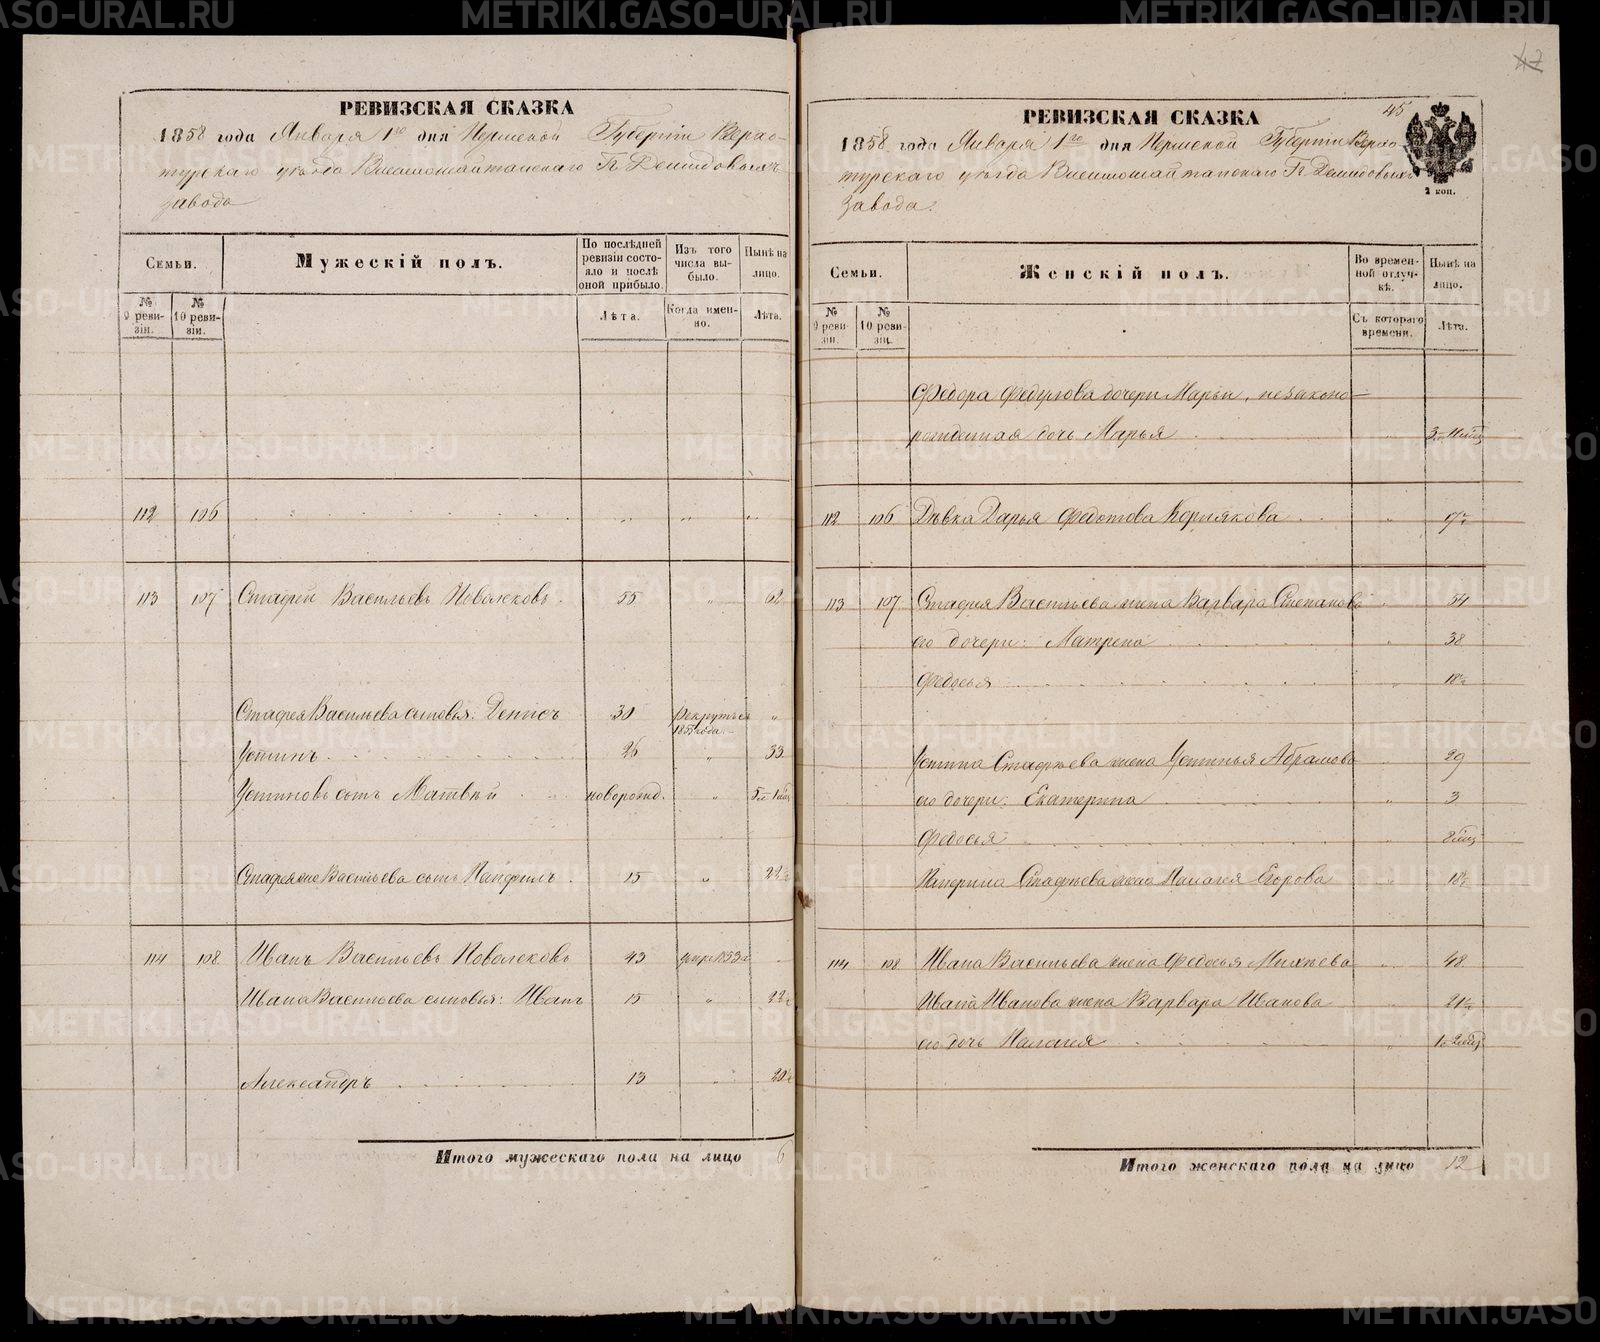 РЕВИЗСКАЯ СКАЗКА
1858 года Января 1го дня Пермской Губернiи Верхо-
турскаго уѣзда Висимошайтанскаго Г. Демидовыхъ
завода
Семьи.
Мужескiй полъ.
По послѣдней ревизiи состояло и послѣ оной прибыло.
Изъ того числа выбыло.
Нынѣ на лицо.
№ 9 ревизiи.
№ 10 ревизiи.
Лѣта.
Когда именно.
Лѣта.
112 106 " " "
113 107 Стафей Васильевъ 55 " 62
Стафея Васильева сыновья: Денисъ 30 " 
Устинъ 26 " 33
Устиновъ сынъ Матвѣй новорожд. "
Васильева сынъ 15 " 22½
114 108 Иванъ Васильевъ 43
Ивана Васильева сыновья: Иванъ 15 " 22½
Александръ 13 " 20½
Итого мужескаго пола на лицо 6
47
45
РЕВИЗСКАЯ СКАЗКА
1858 года Января 1го дня Пермской Губернiи Верхо-
турскаго уѣзда Висимошайтанскаго Г. Демидовыхъ
завода.
2 коп.
Семьи.
Женскiй полъ.
Во временной отлучкѣ.
Нынѣ на лицо.
№ 9 ревизiи.
№ 10 ревизiи.
Съ котораго времени.
Лѣта.
Федора Федулова дочери Марьи, незаконо-
рожденная дочь Марья "
112 106 Дѣвка Дарья Федотова "
113 107 Стафея Васильева жена Варвара Степанова " 54
его дочери: Матрена " 38
Федосья " 18½
Устина Стафѣева жена Устинья Абрамова " 29
его дочери: Екатерина " 3
Федосья "
Стафѣева жена Палагея Егорова "
114 108 Ивана Васильева жена Федосья Михѣева " 48
Ивана Иванова жена Варвара Иванова " 21½
его дочь Палагея "
Итого женскаго пола на лицо 12
METRIKI.GASO-URAL.RU